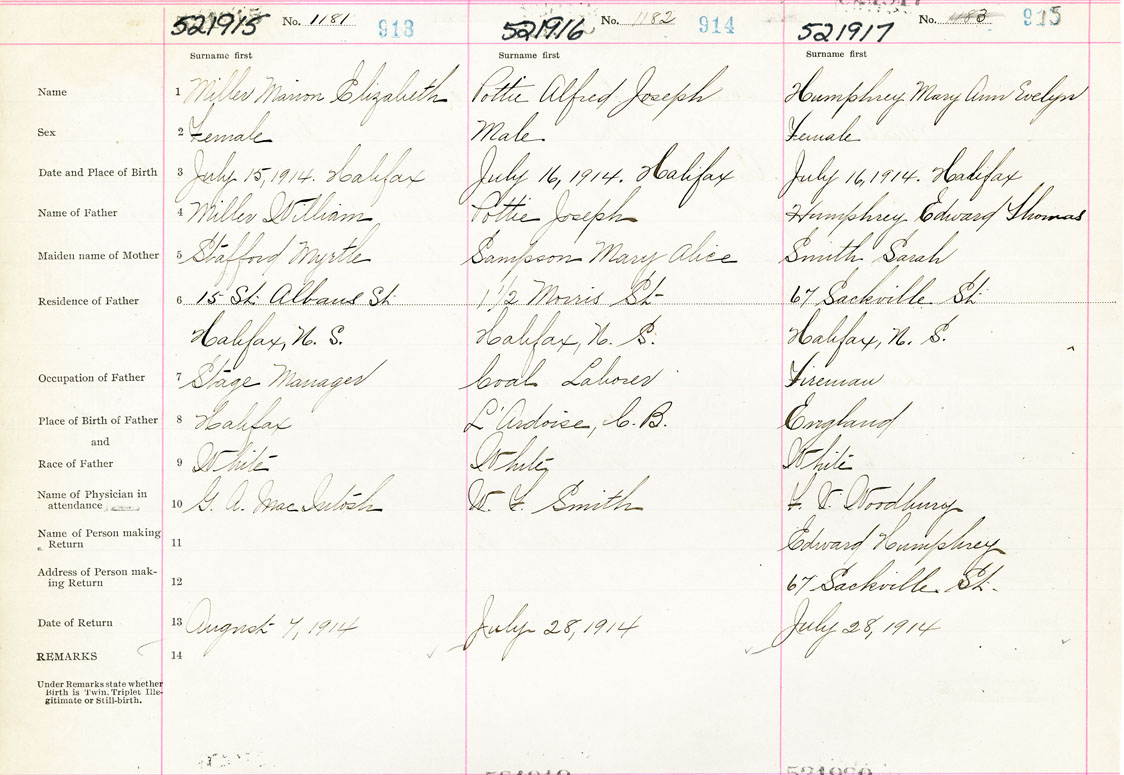 521915 No. 1181 913 521916 No. 1182 914 521917 No. 1183 915
Surname first Surname first Surname first
Name 1 Miller Marion Elizabeth Pottie Alfred Joseph Humphrey Mary Ann Evelyn
Sex 2 Female Male Female
Date and Place of Birth 3 July 15, 1914. Halifax July 16, 1914. Halifax July 16, 1914. Halifax
Name of Father 4 Miller William Pottie Joseph Humphrey Edward Thomas
Maiden name of Mother 5 Stafford Myrtle Sampson Mary Alice Smith Sarah
Residence of Father 6 15 St. Albans St. 1 1/2 Morris St 67 Sackville St.
Halifax, N. S. Halifax, N. S. Halifax, N. S.
Occupation of Father 7 Stage Manager Coal Laborer Fireman
Place of Birth of Father 8 Halifax L'Ardoise, C. B. England
and
Race of Father 9 White White White
Name of Physician in
attendance 10 G. A. MacIntosh W. F. Smith F. V. Woodbury
Name of Person making
Return 11 Edward Humphrey
Address of Person mak-
ing Return 12 67 Sackville St.
Date of Return 13 August 7, 1914 July 28, 1914 July 28, 1914
REMARKS 14
Under Remarks state whether
Birth is Twin, Triplet Ille-
gitimate or Still-birth.